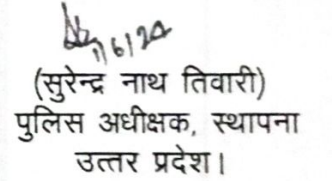 1/6/24
(सुरेन्द्र नाथ तिवारी)
पुलिस अधीक्षक, स्थापना
उत्तर प्रदेश।